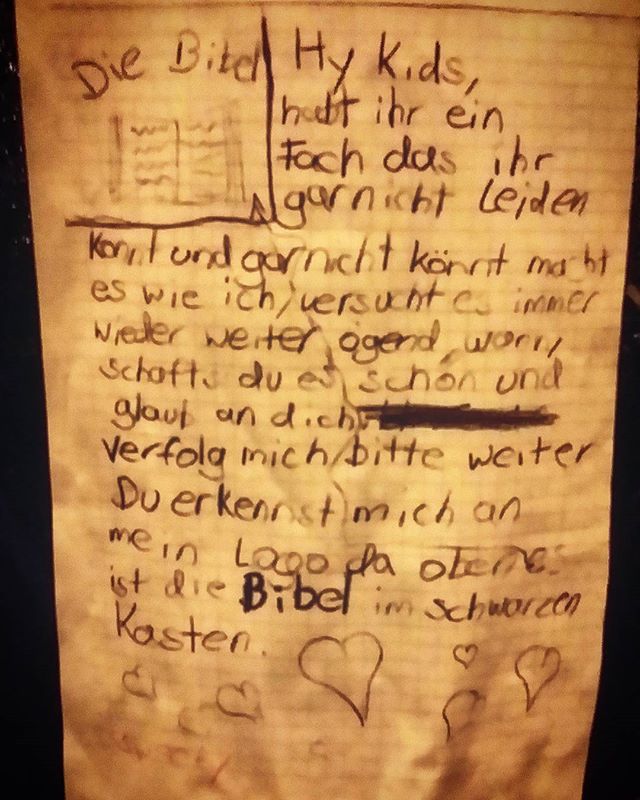 Die Bibel
Hy Kids,
habt ihr ein
Fach das ihr
garnicht Leiden
könnt und garnicht könnt macht
es wie ich, versucht es immer
wieder weiter
schafts du es schon und
glaub an dich
verfolg mich bitte weiter
Du erkennst mich an
mein Logo da oben es
ist die Bibel im schwarzen
Kasten.